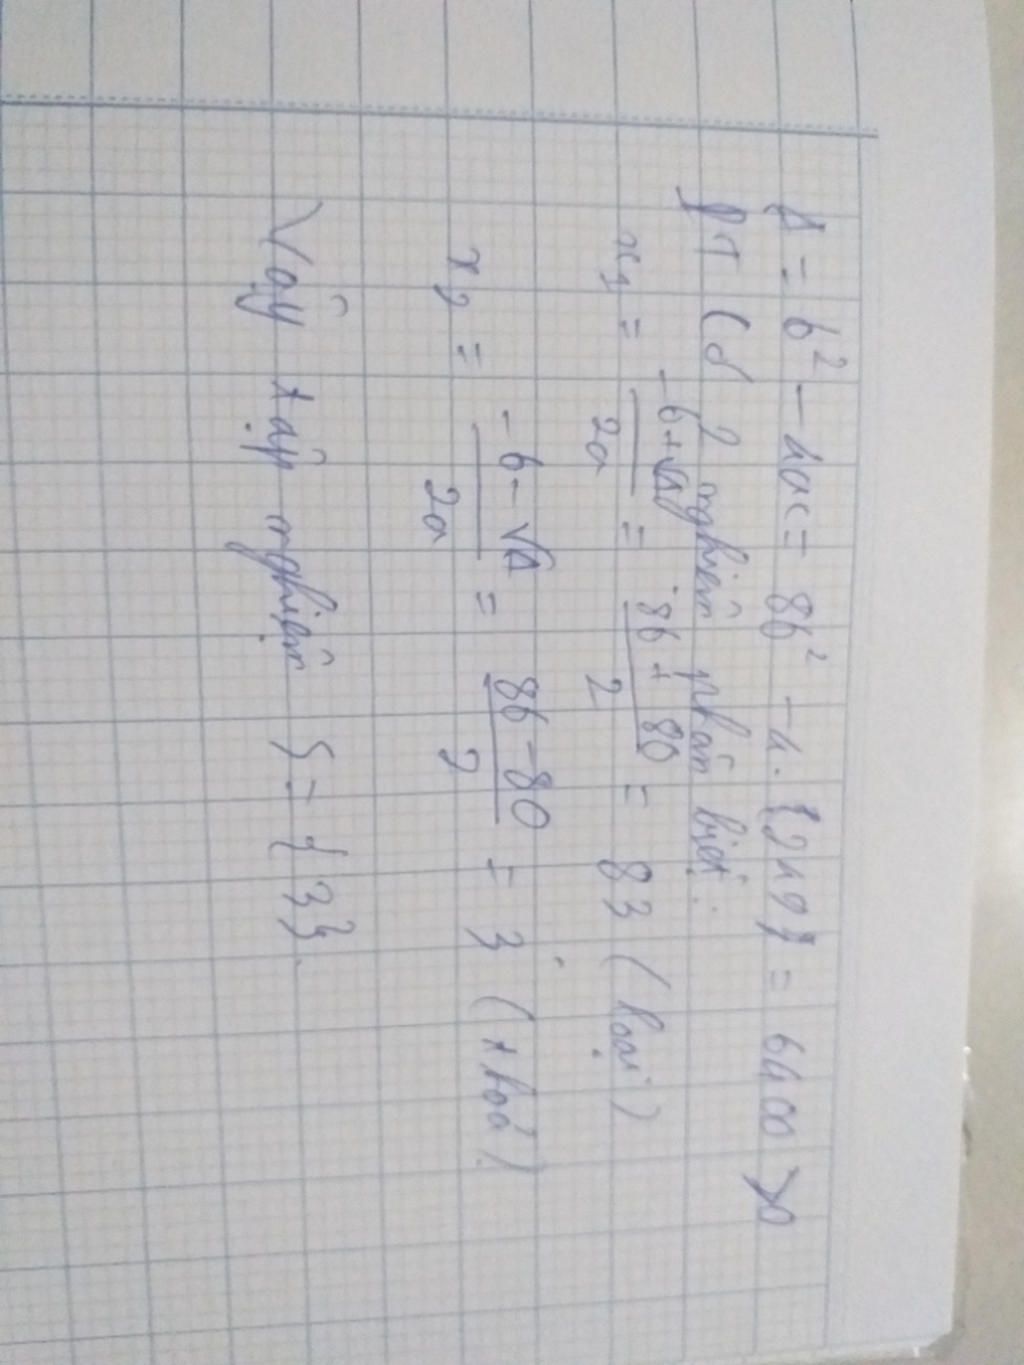 Δ = b² - 4ac = 86² - 4.(249) = 6400 > 0
PT có 2 nghiệm phân biệt:
x₁ = (-b+√Δ)/2a = (86 + 80)/2 = 83 (loại)
x₂ = (-b-√Δ)/2a = (86 - 80)/2 = 3 (thoả)
Vậy tập nghiệm S = {3}.